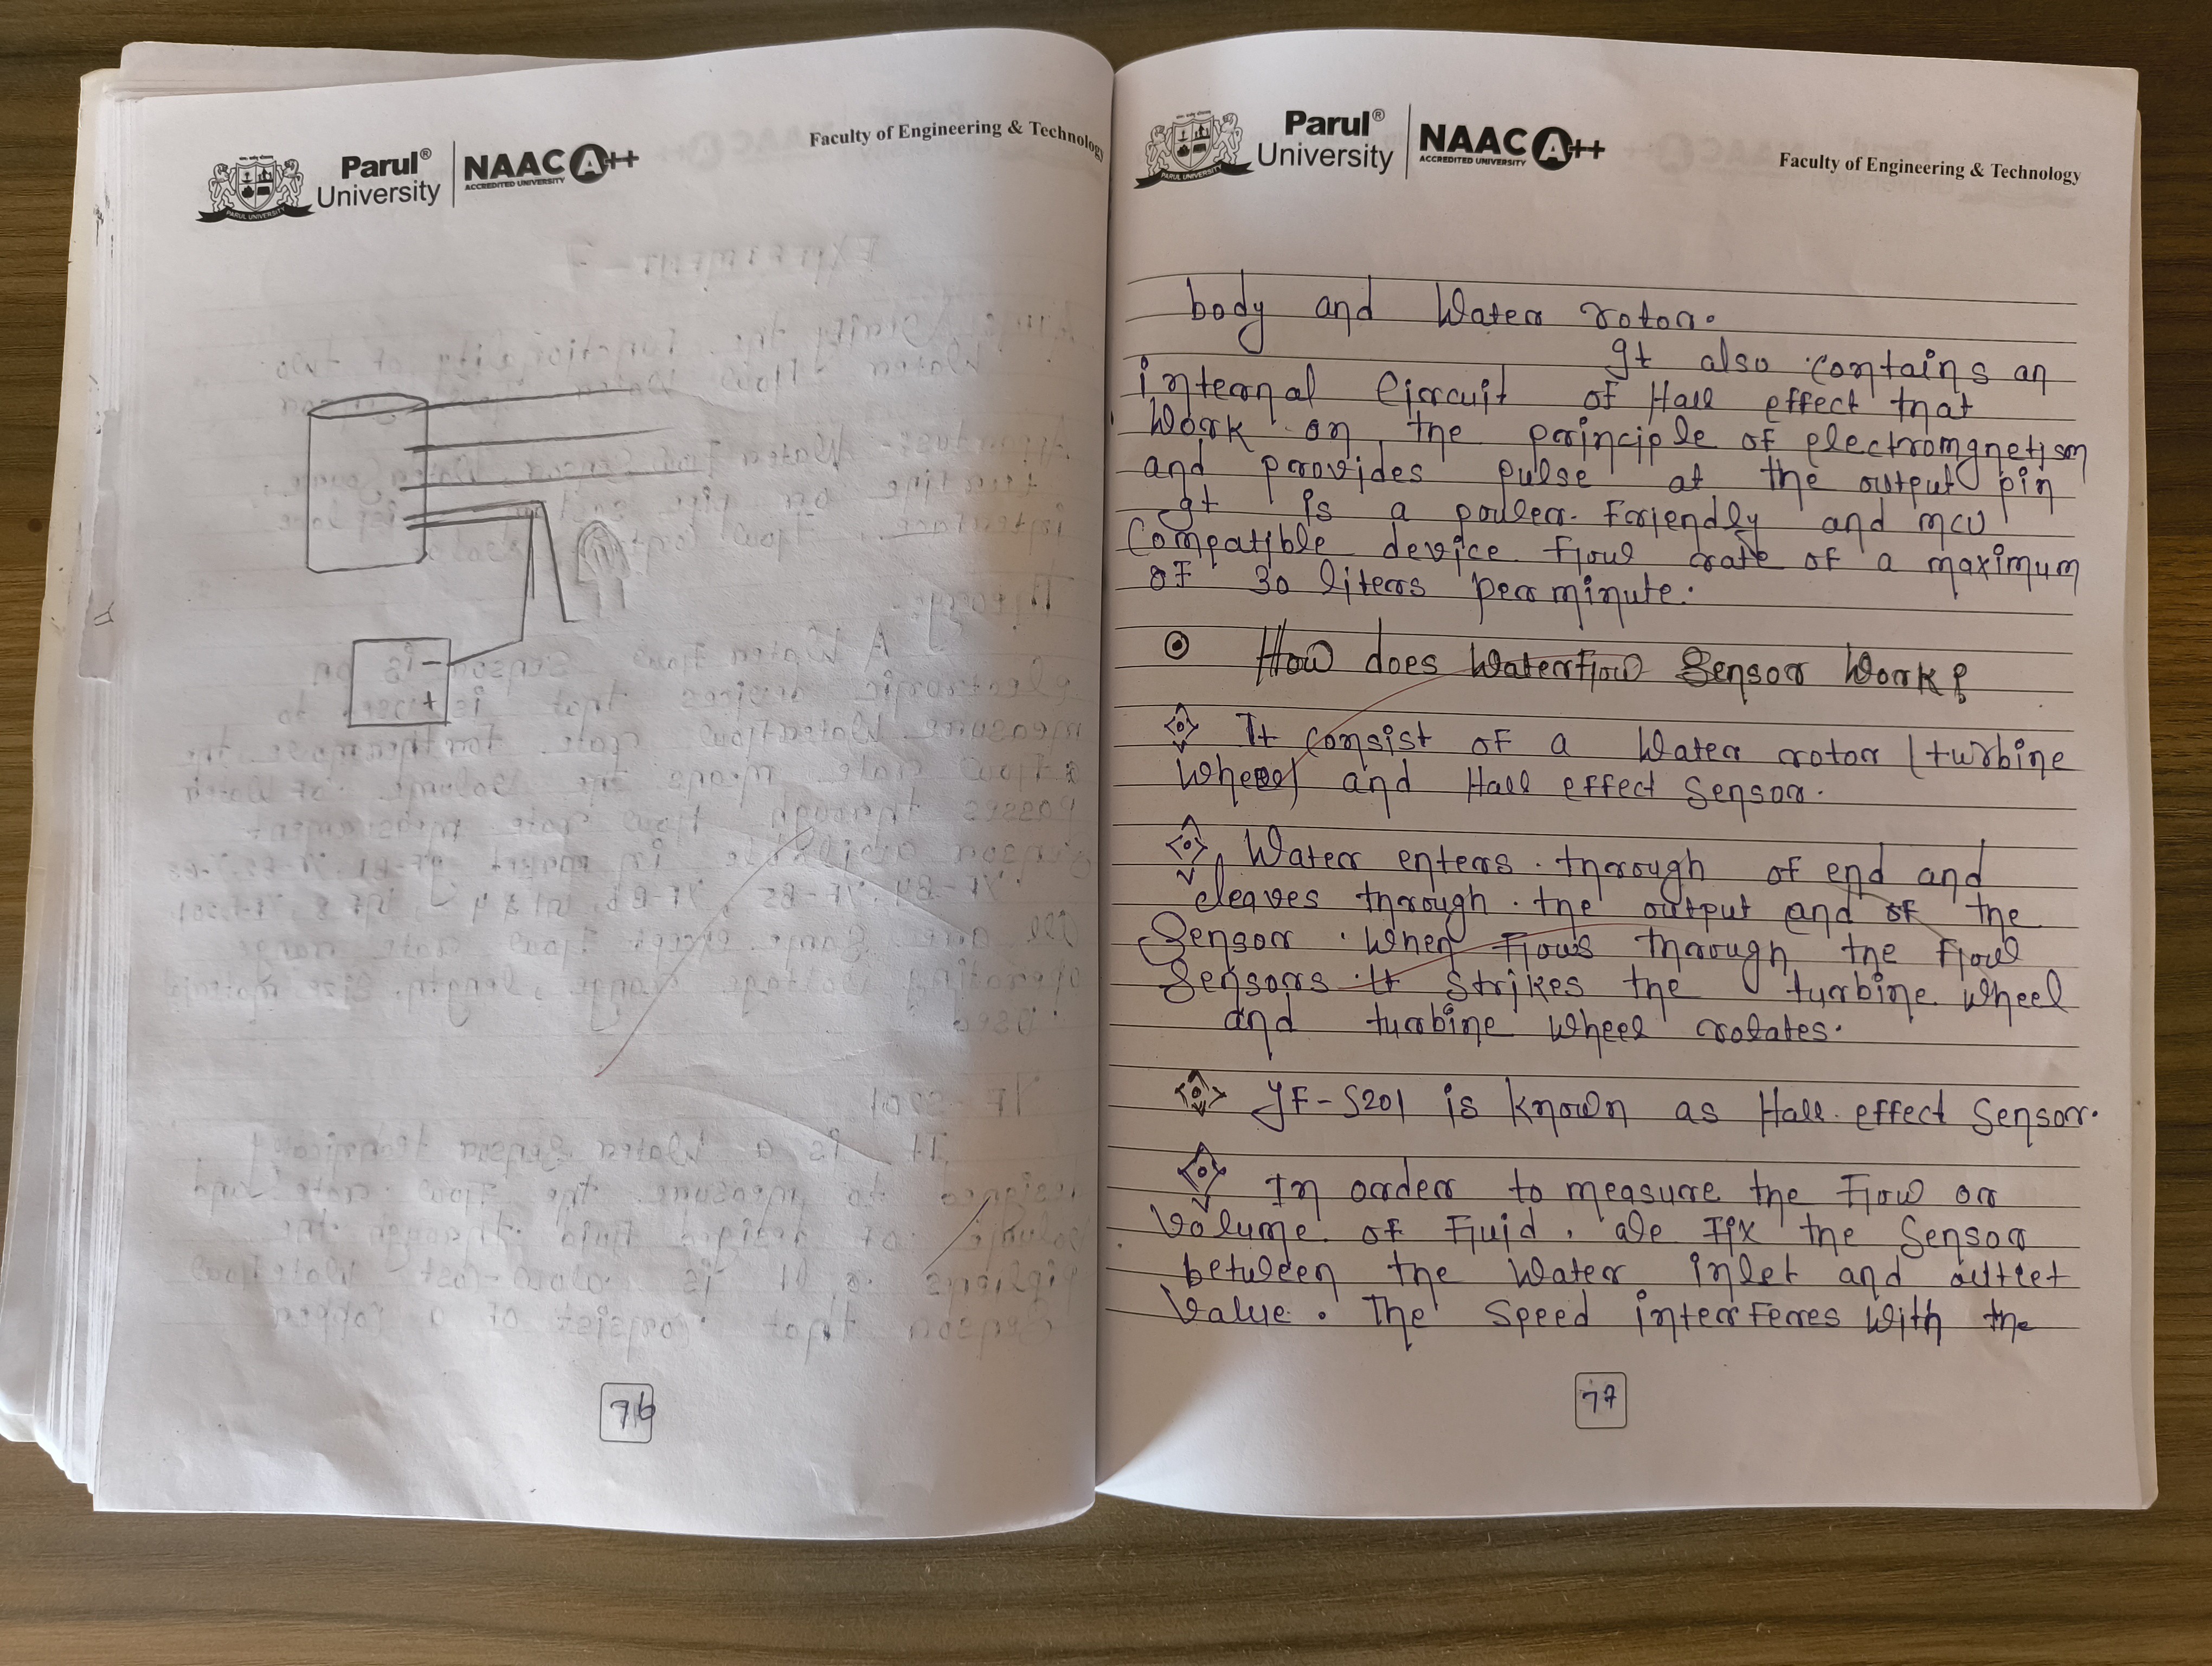 Parul®
University
NAAC A++
ACCREDITED UNIVERSITY
PARUL UNIVERSITY
Faculty of Engineering & Technology
-
+
76
Parul®
University
NAAC A++
ACCREDITED UNIVERSITY
PARUL UNIVERSITY
Faculty of Engineering & Technology
body and Water rotor.
It also contains an
internal Circuit of Hall effect that
Work on the principle of electromgnetism
and provides pulse at the output pin
It is a power Friendly and MCU
Compatible device Flow rate of a maximum
of 30 liters per minute.
How does Waterflow Sensor Work?
It consist of a Water rotor (turbine
wheel) and Hall effect Sensor.
Water enters through of end and
leaves through the output and of the
Sensor. When Flows through the Flow
Sensors It strikes the turbine wheel
and turbine wheel rotates.
YF-S201 is known as Hall effect Sensor.
In order to measure the Flow or
Volume of Fluid, we Fix the Sensor
between the Water inlet and outlet
Value. The Speed interferes with the
77